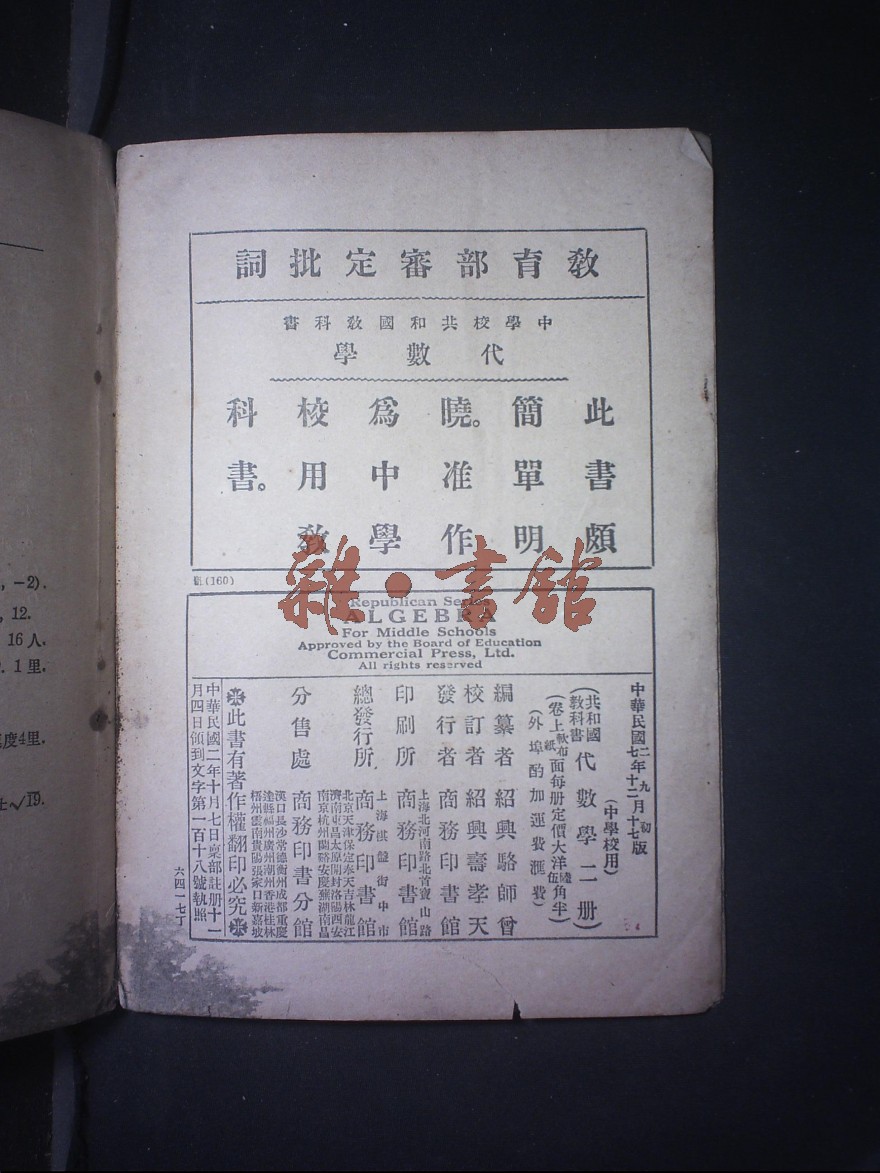 教育部審定批詞
中學校共和國教科書
代數學
此書頗
簡單明
曉。准作
爲中學
校用教
科書。
(160)
雜·書館
Republican Series
ALGEBRA
For Middle Schools
Approved by the Board of Education
Commercial Press, Ltd.
All rights reserved
中華民國二年九月初版
七年十二月十七版
(中學校用)
(共和國教科書代數學二册)
(卷上軟布面紙面每册定價大洋陸伍角半)
(外埠酌加運費滙費)
編纂者 紹興駱師曾
校訂者 紹興壽孝天
發行者 商務印書館
印刷所 上海北河南路北首寶山路 商務印書館
總發行所 上海棋盤街中市 商務印書館
分售處 商務印書分館
北京天津保定奉天吉林龍江
濟南東昌太原開封洛陽西安
南京杭州蘭谿安慶蕪湖南昌
漢口長沙常德衡州成都重慶
達縣福州廣州潮州香港桂林
梧州雲南貴陽張家口新嘉坡
此書有著作權翻印必究
中華民國二年十月七日稟部註册十一
月四日領到文字第一百十八號執照
六四一七丁
, −2).
, 12.
16人.
1里.
度4里.
±√19.